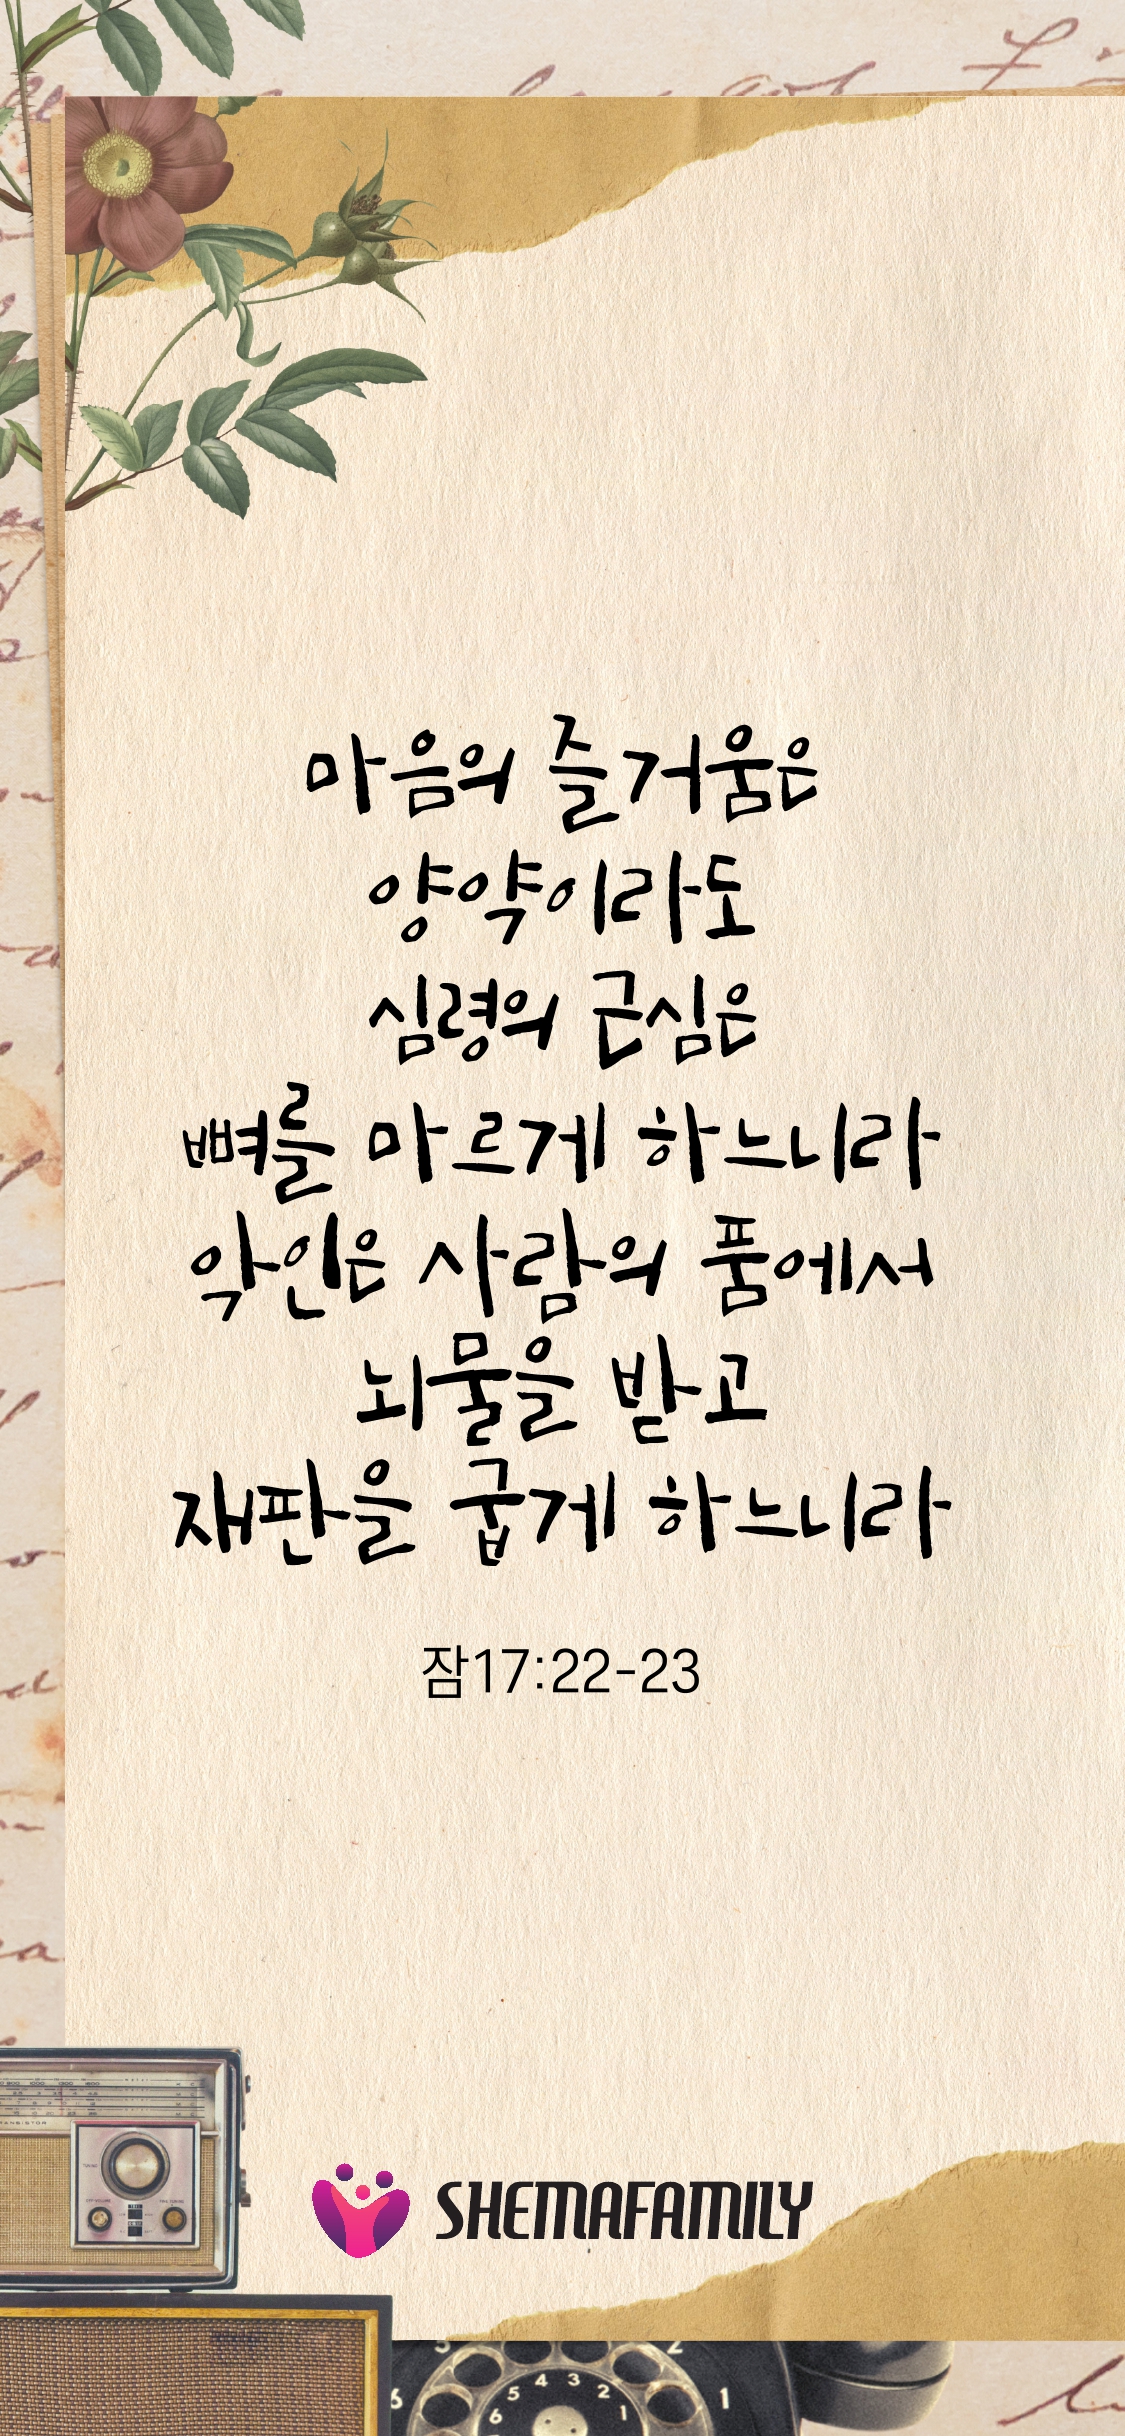 마음의 즐거움은
양약이라도
심령의 근심은
뼈를 마르게 하느니라
악인은 사람의 품에서
뇌물을 받고
재판을 굽게 하느니라
잠17:22-23
SHEMAFAMILY